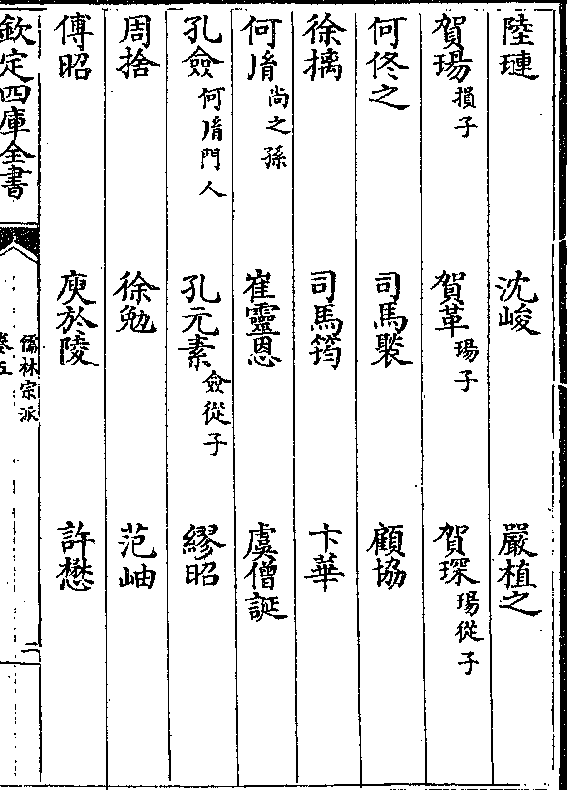 陸璉 沈峻 嚴植之
賀瑒損子 賀革瑒子 賀琛瑒從子
何佟之 司馬褧 顧協
徐摛 司馬筠 卞華
何胤尚之孫 崔靈恩 虞僧誕
孔僉何胤門人 孔元素僉從子 繆昭
周捨 徐勉 范岫
傅昭 庾於陵 許懋
欽定四庫全書 儒林宗派 卷五 二